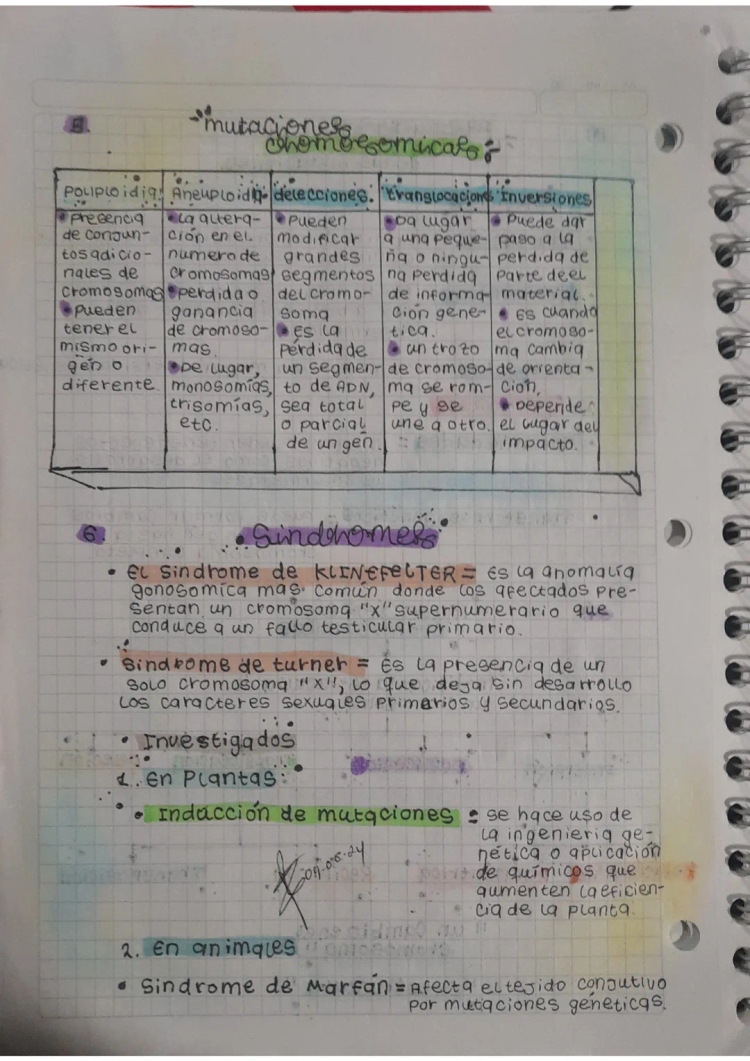 5. mutaciones
chomosomicas:
Poliploidia
Presencia
de conjun-
tos adicio-
nales de
cromosomas
Pueden
tener el
mismo ori-
gen o
diferente
Aneuploidia
La altera-
ción en el
numero de
cromosomas
perdida o
ganancia
de cromoso-
mas.
De lugar,
monosomías,
trisomías,
etc.
delecciones.
Pueden
modificar
grandes
segmentos
del cromo-
soma
es la
pérdida de
un segmen-
to de ADN,
sea total
o parcial
de un gen.
translocacions
Da lugar
a una peque-
ña o ningu-
na perdida
de informa-
cion gene-
tica.
un trozo
de cromoso-
ma se rom-
pe y se
une a otro.
Inversiones
Puede dar
paso a la
perdida de
parte deel
material.
es cuando
el cromoso-
ma cambia
de orienta-
cion.
Depende
el lugar del
impacto.
6. Sindromes
• El Sindrome de KLINEFELTER = Es la anomalía
gonosomica mas común donde los afectados pre-
sentan un cromosoma "x" supernumerario que
conduce a un fallo testicular primario.
• Sindrome de turner = Es la presencia de un
solo cromosoma "x", lo que deja sin desarrollo
los caracteres sexuales primarios y secundarios.
• Investigados
1. En Plantas:
• Indacción de mutaciones = se hace uso de
la ingenieria ge-
nética o aplicación
de químicos que
aumenten la eficien-
cia de la planta.
2. En animales
• Sindrome de Marfán = Afecta el tejido conjutivo
por mutaciones géneticas.